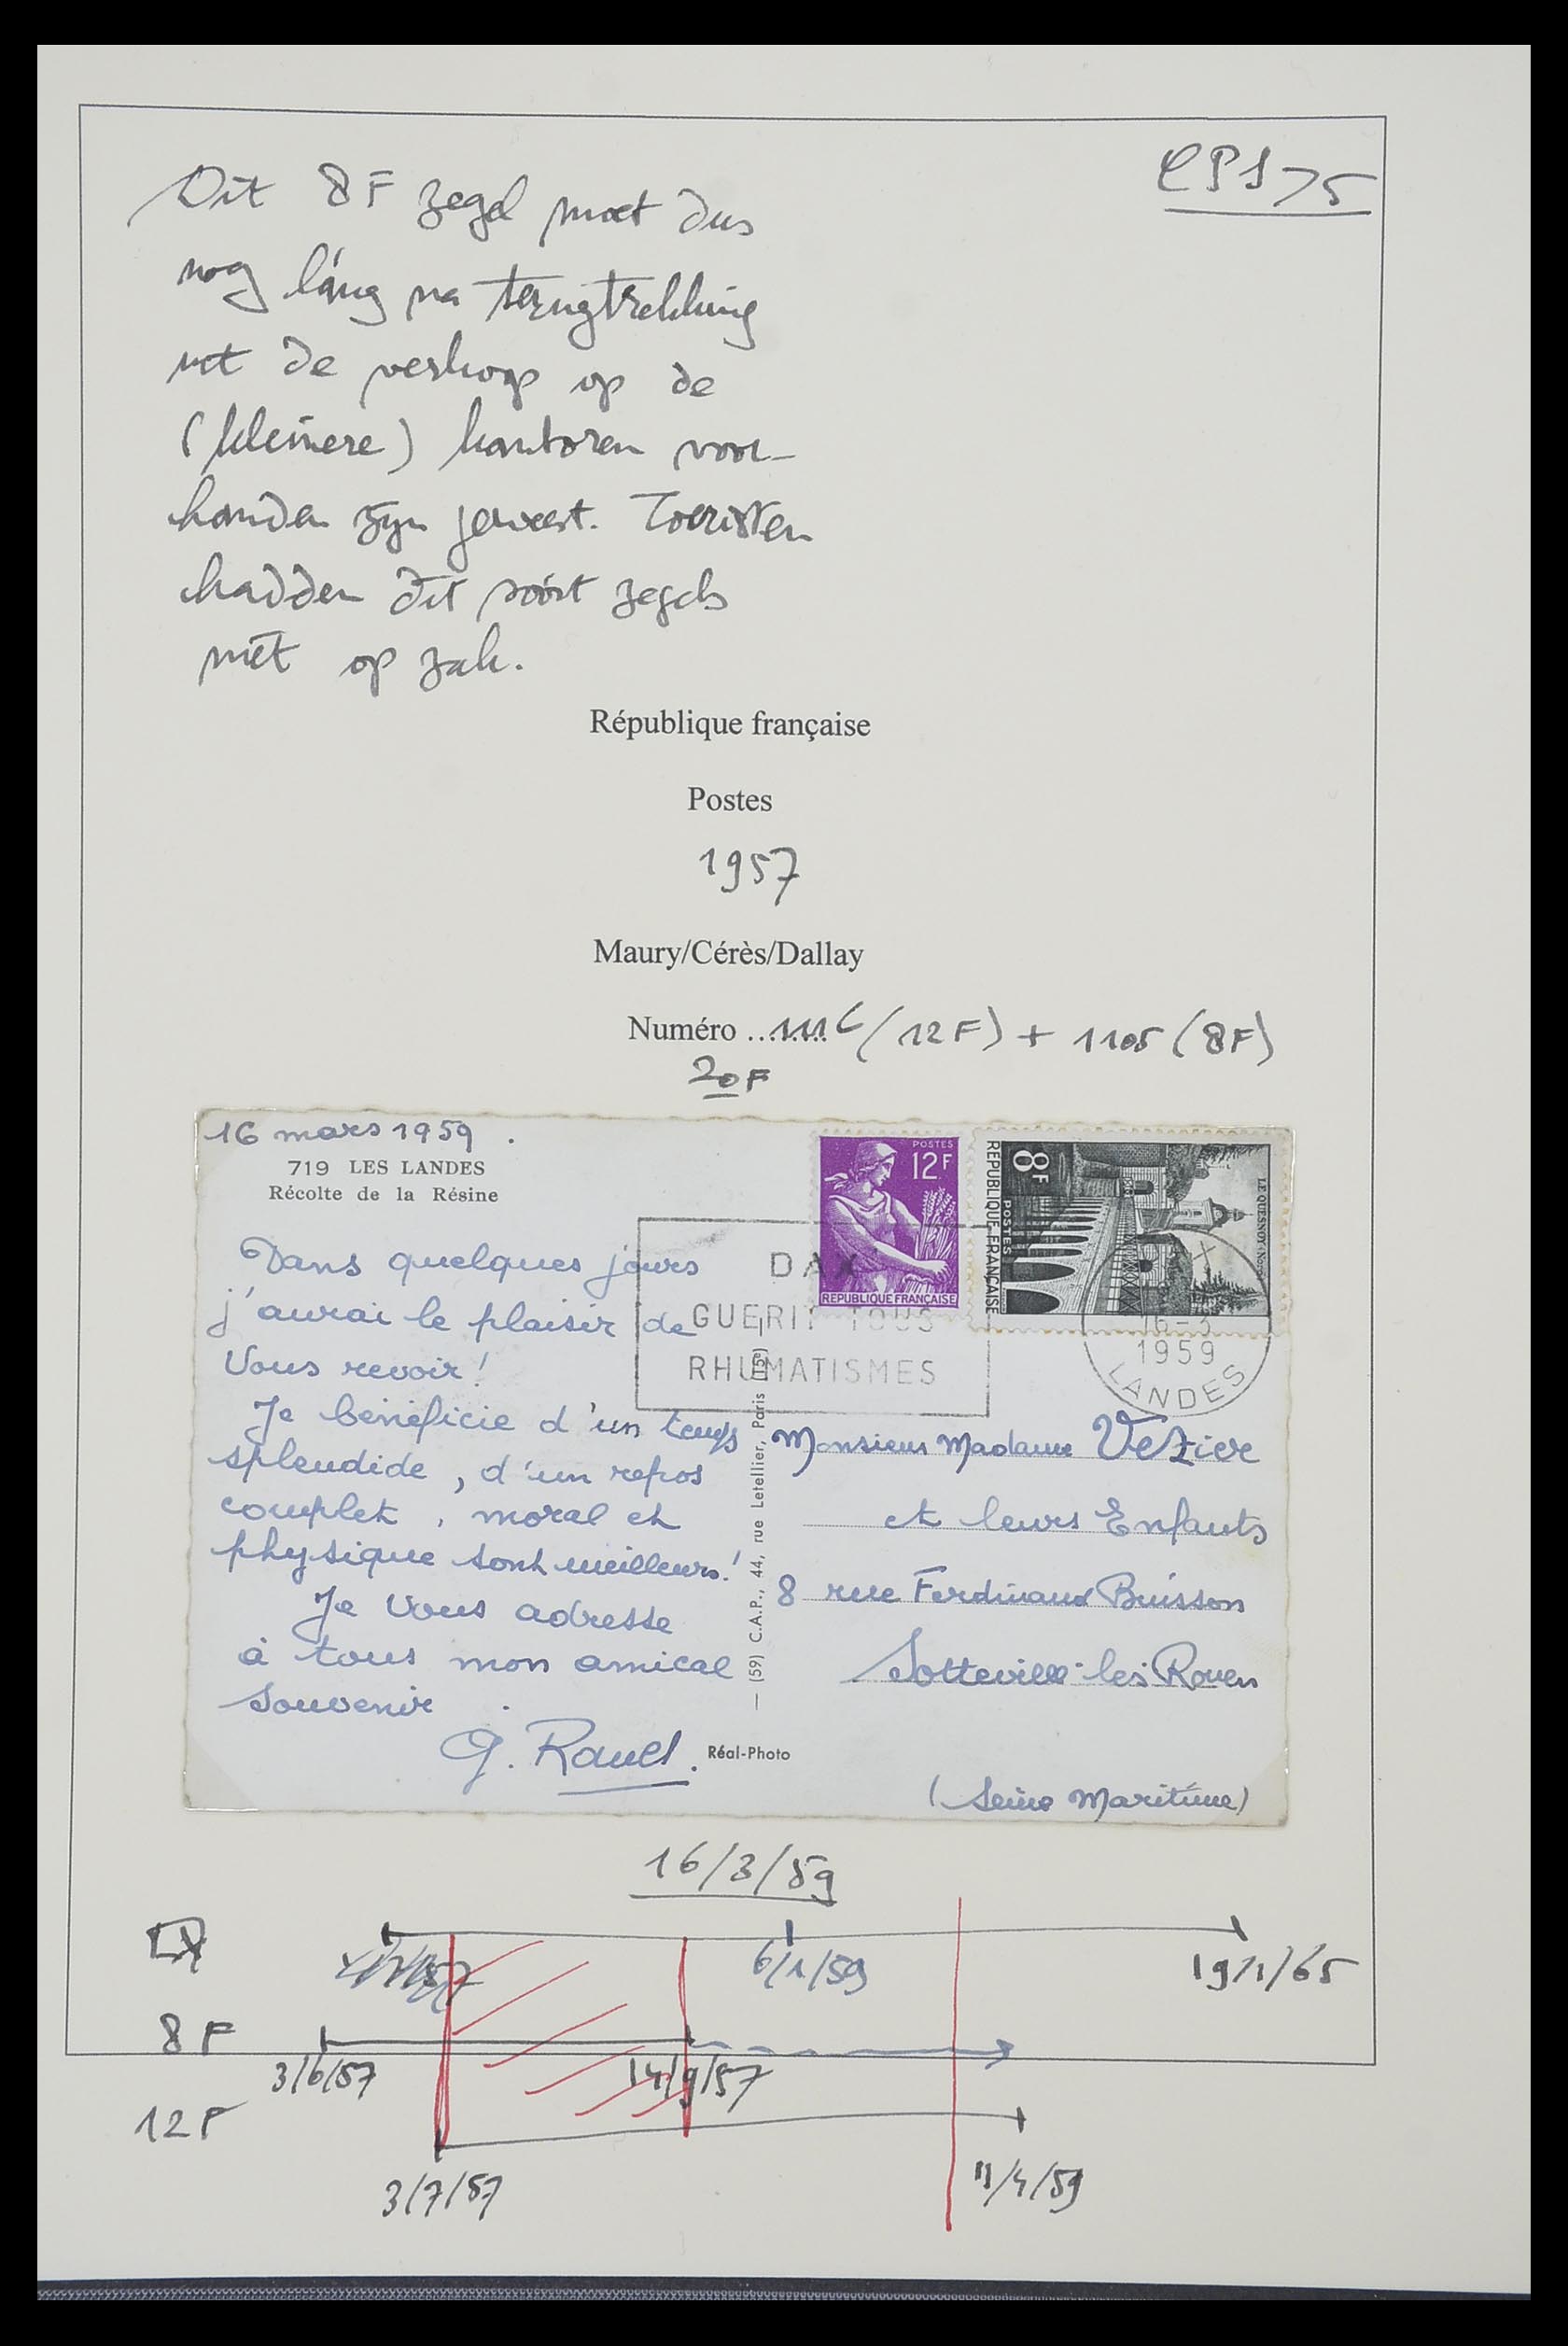 CPS75
Dit 8F zegel moet dus
nog láng na terugtrekking
uit de verkoop op de
(kleinere) kantoren voor-
handen zijn geweest. Toeristen
hadden dit sóórt zegels
niet op zak.
République française
Postes
1957
Maury/Cérès/Dallay
Numéro ..1116 (12F) + 1105 (8F)
20F
16 mars 1959.
719 LES LANDES
Récolte de la Résine
Dans quelques jours
j'aurai le plaisir de
Vous revoir!
Je bénéficie d'un temps
splendide, d'un repos
complet, moral et
physique sont meilleurs!
Je Vous adresse
à tous mon amical
Souvenir.
Réal-Photo
— (59) C.A.P., 44, rue Letellier, Paris (15e)
POSTES
12F
REPUBLIQUE FRANÇAISE
8F
POSTES
REPUBLIQUE FRANÇAISE
LE QUESNOY (NORD)
DAX
GUERIT TOUS
RHUMATISMES
16-3
1959
LANDES
Monsieur Madame Vezier
et leurs Enfants
8 rue Ferdinand Buisson
Sotteville-les-Rouen
(Seine Maritime)
16/3/59
6/1/59
19/1/65
8F
3/6/57
14/9/57
12F
3/7/57
11/4/59